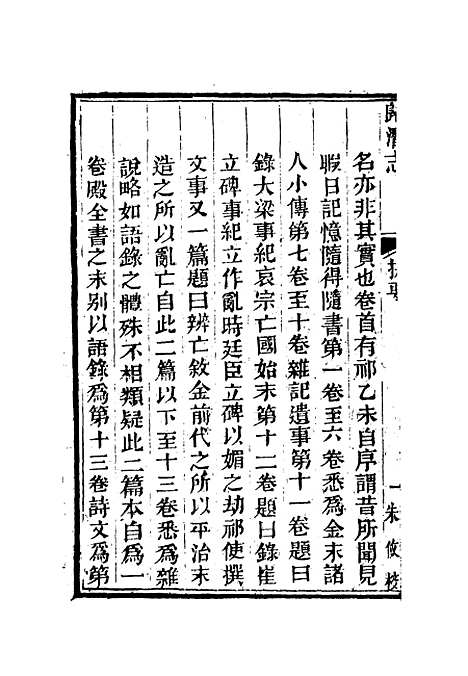 歸潛志
一 朱俊校
名亦非其實也卷首有祁乙未自序謂昔所聞見
暇日記憶隨得隨書第一卷至六卷悉爲金末諸
人小傳第七卷至十卷雜記遺事第十一卷題曰
錄大梁事紀哀宗亡國始末第十二卷題曰錄崔
立碑事紀立作亂時廷臣立碑以媚之劫祁使撰
文事又一篇題曰辨亡敘金前代之所以平治末
造之所以亂亡自此二篇以下至十三卷悉爲雜
說略如語錄之體殊不相類疑此二篇本自爲一
卷殿全書之末別以語錄爲第十三卷詩文爲第